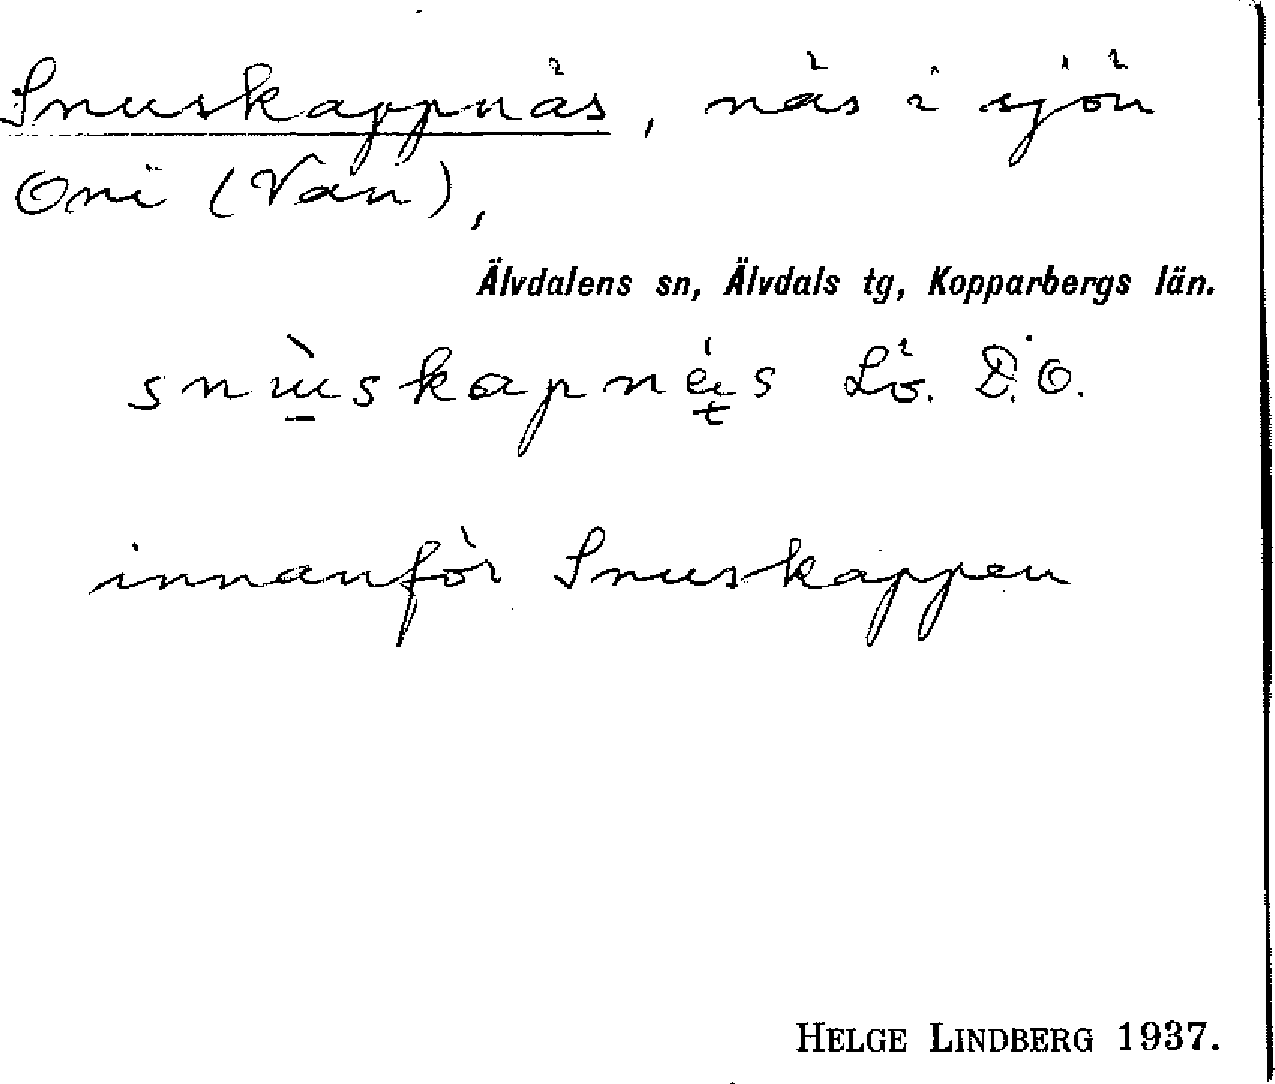 Snuskappnäs, näs i sjön
Orsi (Van),
Älvdalens sn, Älvdals tg, Kopparbergs län.
Lö. D. O.
innanför Snuskappen
HELGE LINDBERG 1937.